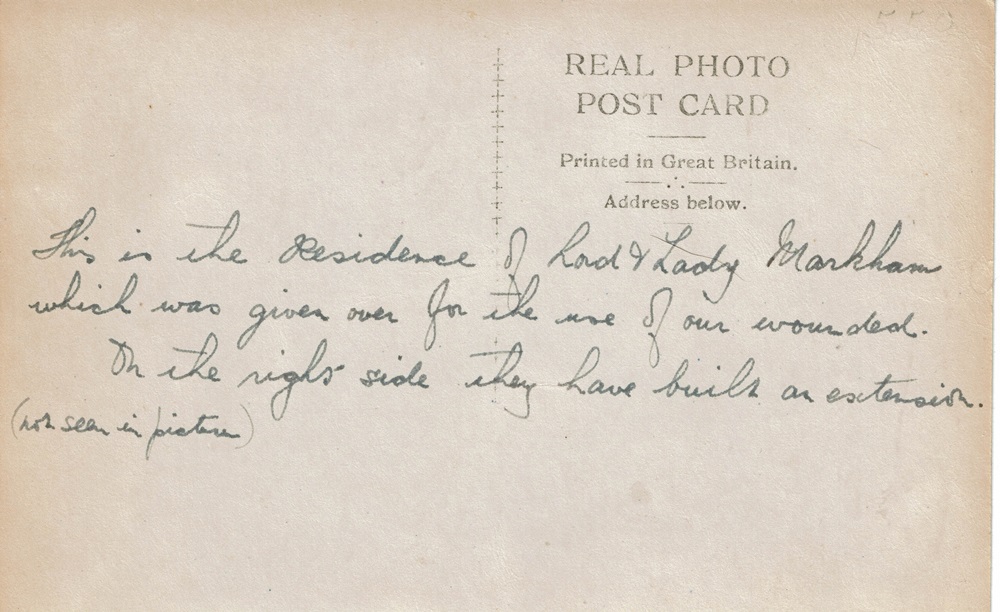 REAL PHOTO
POST CARD
Printed in Great Britain.
Address below.
This is the Residence of Lord & Lady Markham
which was given over for the use of our wounded.
On the right side they have built an extension.
(not seen in picture)